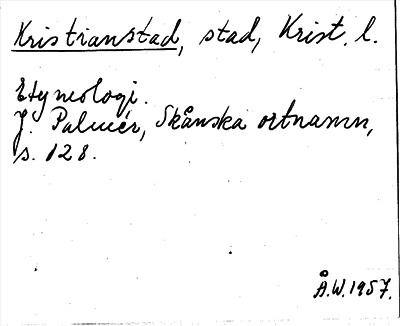 Kristianstad, stad, Krist. l.
Etymologi.
J. Palmér, Skånska ortnamn,
s. 128.
Å.W. 1957.